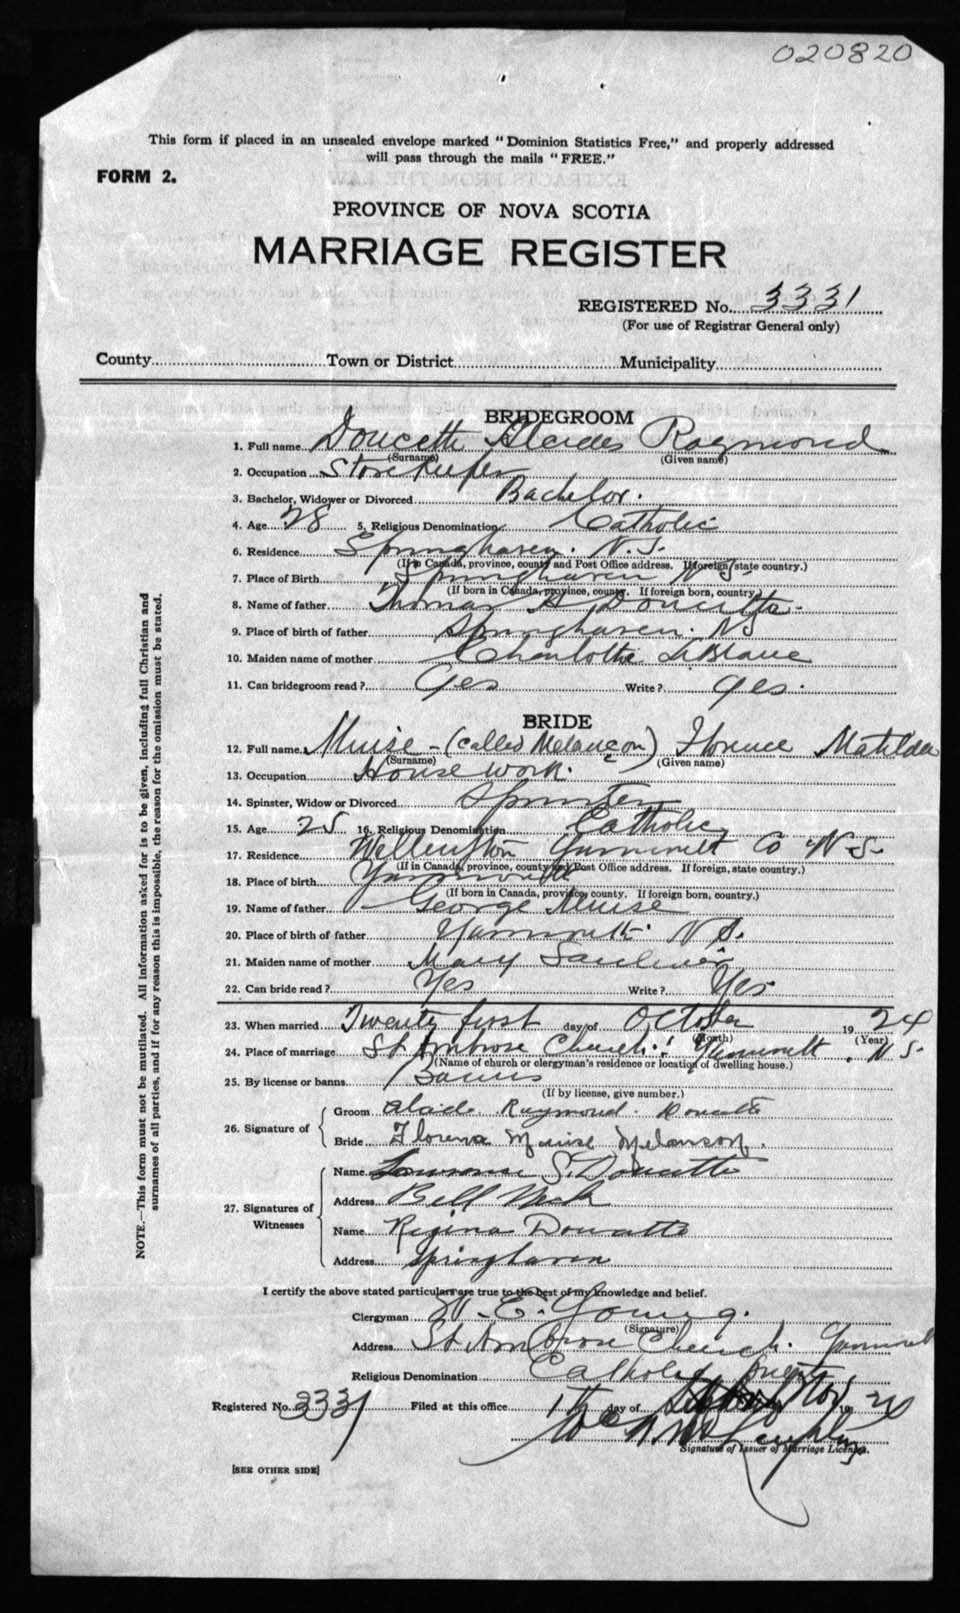 020820
This form if placed in an unsealed envelope marked "Dominion Statistics Free," and properly addressed
will pass through the mails "FREE."
FORM 2.
PROVINCE OF NOVA SCOTIA
MARRIAGE REGISTER
REGISTERED No. 3331
(For use of Registrar General only)
County Town or District Municipality
BRIDEGROOM
1. Full name Doucette Alcides Raymond
(Surname) (Given name)
2. Occupation Storekeeper
3. Bachelor, Widower or Divorced Bachelor.
4. Age 28 5. Religious Denomination Catholic
6. Residence Springhaven. N.S.
(If in Canada, province, county and Post Office address. If foreign, state country.)
7. Place of Birth Springhaven N.S.
(If born in Canada, province, county. If foreign born, country.)
8. Name of father Thomas A Doucette.
9. Place of birth of father Springhaven. NS
10. Maiden name of mother Charlotte LeBlanc
11. Can bridegroom read? Yes Write? yes.
BRIDE
12. Full name Muise - (called Melançon) Florence Matilda
(Surname) (Given name)
13. Occupation House work.
14. Spinster, Widow or Divorced Spinster
15. Age 25 16. Religious Denomination Catholic
17. Residence Wellington Yarmouth Co N.S.
(If in Canada, province, county and Post Office address. If foreign, state country.)
18. Place of birth Yarmouth
(If born in Canada, province, county. If foreign born, country.)
19. Name of father George Muise
20. Place of birth of father Yarmouth. N.S.
21. Maiden name of mother Mary Saulnier
22. Can bride read? Yes Write? Yes
23. When married Twenty first day of October 1924
(Month) (Year)
24. Place of marriage St Ambrose Church. Yarmouth. N.S.
(Name of church or clergyman's residence or location of dwelling house.)
25. By license or banns Banns
(If by license, give number.)
26. Signature of Groom Alcide Raymond. Doucette
Bride Florence Muise Melanson.
27. Signatures of Witnesses Name S. Doucette
Address Bell Neck
Name Regina Doucette
Address Springhaven
I certify the above stated particulars are true to the best of my knowledge and belief.
Clergyman W. E. Young.
(Signature)
Address St Ambrose Church. Yarmouth
Religious Denomination Catholic priest
Registered No. 3331 Filed at this office day of 1924
Signature of Issuer of Marriage Licenses.
[SEE OTHER SIDE]
NOTE.—This form must not be mutilated. All information asked for is to be given, including full Christian and
surnames of all parties, and if for any reason this is impossible, the reason for the omission must be stated.